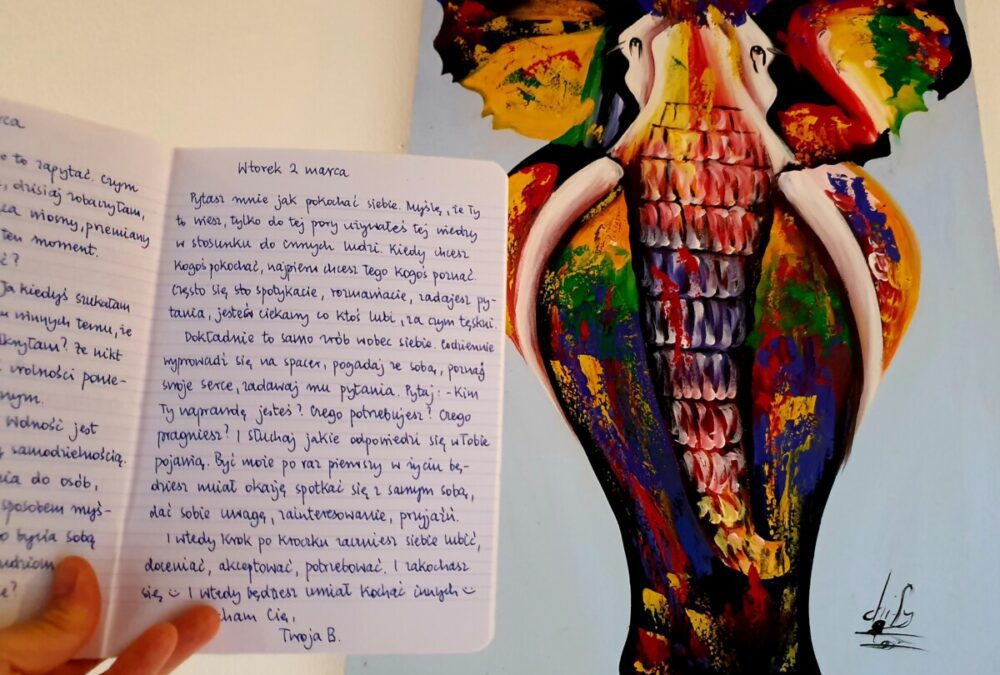 rca
o to zapytać. Czym
, dzisiaj zobaczyłam,
ca wiosny, przemiany
ten moment.
ć?
Ja kiedyś szukałam
u innych temu, że
kryłam? Że nikt
wolności ponie-
nym.
Wolność jest
samodzielnością.
ia do osób,
sposobem myś-
o bycia sobą
ludziom
e?
Wtorek 2 marca
Pytasz mnie jak pokochać siebie. Myślę, że Ty
to wiesz, tylko do tej pory używałeś tej wiedzy
w stosunku do innych ludzi. Kiedy chcesz
kogoś pokochać, najpierw chcesz tego kogoś poznać.
Często się sto spotykacie, rozmawiacie, zadajesz py-
tania, jesteś ciekawy co ktoś lubi, za czym tęskni.
Dokładnie to samo zrób wobec siebie. Codziennie
wyprowadź się na spacer, pogadaj ze sobą, poznaj
swoje serce, zadawaj mu pytania. Pytaj: - Kim
Ty naprawdę jesteś? Czego potrzebujesz? Czego
pragniesz? I słuchaj jakie odpowiedzi się w Tobie
pojawią. Być może po raz pierwszy w życiu bę-
dziesz miał okazję spotkać się z samym sobą,
dać sobie uwagę, zainteresowanie, przyjaźń.
I wtedy krok po kroczku zaczniesz siebie lubić,
doceniać, akceptować, potrzebować. I zakochasz
się ☺ I wtedy będziesz umiał kochać innych ☺
cham Cię,
Twoja B.